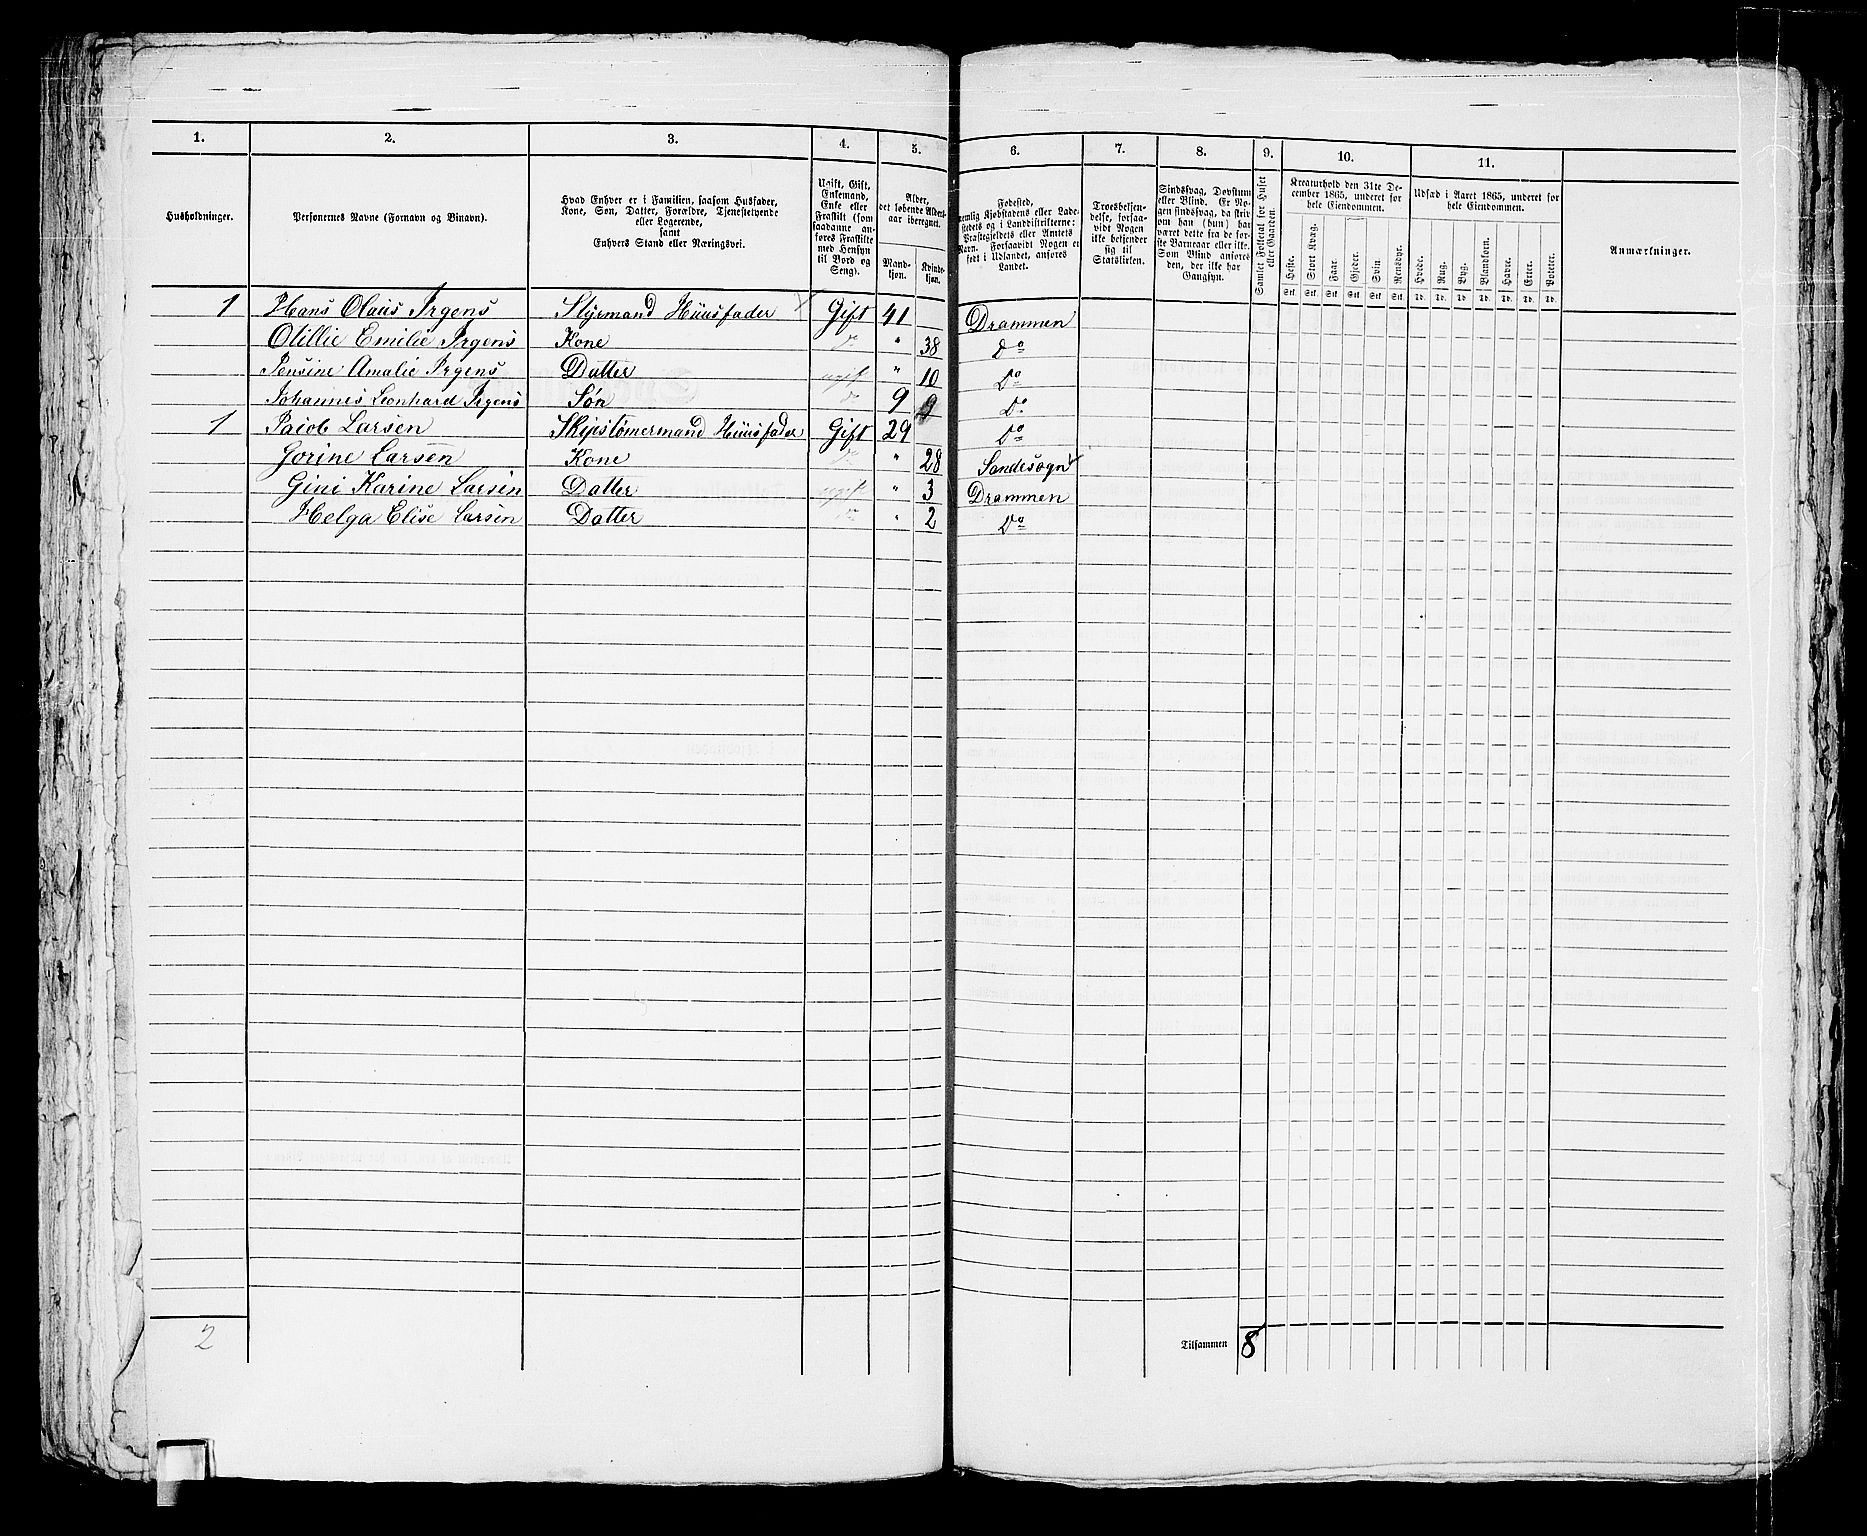 1. 2. 3. 4. 5. 6. 7. 8. 9. 10. 11.
Husholdninger.
Personernes Navne (Fornavn og Binavn).
Hvad Enhver er i Familien, saasom Husfader,
Kone, Søn, Datter, Forældre, Tjenestetyende
eller Logerende,
samt
Enhvers Stand eller Næringsvei.
Ugift, Gift,
Enkemand,
Enke eller
Fraskilt (som
saadanne an-
føres Fraskilte
med Hensyn
til Bord og
Seng).
Alder,
det løbende Alders-
aar iberegnet.
Mand-
kjøn.
Kvinde-
kjøn.
Fødested,
nemlig Kjøbstadens eller Lade-
stedets og i Landdistrikterne:
Præstegjeldets eller Amtets
Navn. Forsaavidt Nogen er
født i Udlandet, anføres
Landet.
Troesbekjen-
delse, forsaa-
vidt Nogen
ikke bekjender
sig til
Statskirken.
Sindssvag, Døvstum
eller Blind. Er No-
gen sindssvag, da skriv
om han (hun) har
været dette fra de før-
ste Barneaar eller ikke.
Som Blind anføres
den, der ikke har
Gangsyn.
Samlet Folketal for Huset
eller Gaarden.
Kreaturhold den 31te De-
cember 1865, underet for
hele Eiendommen.
Heste. Stort Kvæg. Faar. Gjeder. Svin. Rensdyr.
Stk. Stk. Stk. Stk. Stk. Stk.
Udsæd i Aaret 1865, underet for
hele Eiendommen.
Hvede. Rug. Byg. Blandkorn. Havre. Erter. Poteter.
Td. Td. Td. Td. Td. Td. Td.
Anmærkninger.
1 Hans Olaus Irgens Styrmand Huusfader Gift 41 Drammen
Otillie Emilie Irgens Kone do " 38 Do
Jensine Amalie Irgens Datter ugift " 10 Do
Johannes Leonhard Irgens Søn do 9 Do
1 Jacob Larsen Skipstømermand Huusfader Gift 29 Do
Gorine Larsen Kone do " 28 Sandesogn
Gini Karine Larsen Datter ugift " 3 Drammen
Helga Elise Larsen Datter do " 2 Do
2 Tilsammen 8